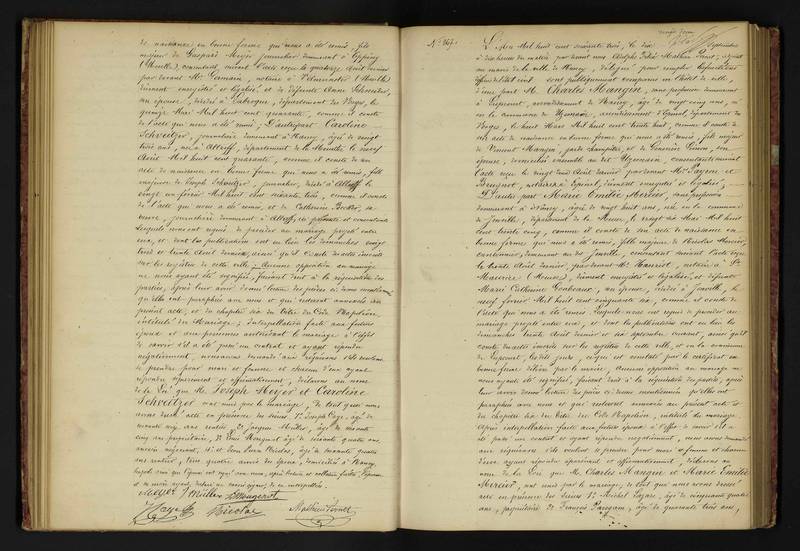 de naissance en bonne forme qui nous a été remis, fils
majeur de Gaspard Meyer, journalier demeurant à Epping
(Moselle), consentant, suivant l'acte reçu le quatorze Août dernier
par devant Me notaire à (Moselle)
dûment enregistré et légalisé, et de défunte Anne Schneider,
son épouse, décédée à Labroque, département des Vosges, le
quinze Mai Mil huit cent quarante, comme il conste
de l'acte qui nous a été remis; D'autre part Caroline
Schveitzer, journalière demeurant à Nancy, âgée de vingt
trois ans, née à Altroff, département de la Meurthe, le neuf
Août Mil huit cent quarante, comme il conste de son
acte de naissance en bonne forme qui nous a été remis, fille
majeure de Joseph Schveitzer, journalier, décédé à Altroff le
vingt un février Mil huit cent soixante trois, comme il conste
de l'acte qui nous a été remis, et de Catherine Becker, sa
veuve, journalière demeurant à Altroff, ici présente et consentante
Lesquels nous ont requis de procéder au mariage projeté entre
eux, et dont les publications ont eu lieu les dimanches vingt
trois et trente Août dernier, ainsi qu'il conste des actes inscrits
sur les registres de cette ville; Aucune opposition au mariage
ne nous ayant été signifiée, faisant droit à la réquisition des
parties, après leur avoir donné lecture des pièces ci-dessus mentionnées
qu'elles ont paraphées avec nous et qui resteront annexées au
présent acte, et du chapitre six du titre du Code Napoléon
intitulé du Mariage; interpellation faite aux futurs
époux et aux personnes autorisant le mariage à l'effet
de savoir s'il a été passé un contrat et ayant répondu
négativement, nous avons demandé aux requérans s'ils veulent
se prendre pour mari et femme et chacun d'eux ayant
répondu séparément et affirmativement, déclarons au nom
de la Loi que M. Joseph Meyer et Caroline
Schveitzer sont unis par le mariage, de tout quoi nous
avons dressé acte en présence des Sieurs 1° Joseph Caye, âgé de
ans rentier, 2° Müller, âgé de
cinq ans, propriétaire, 3° Mougenot âgé de soixante quatre ans,
ancien négociant, 4° et Jean Nicolas, âgé de soixante quatre
ans rentier, tous quatre amis des époux, domiciliés à Nancy,
Meyer J Müller Mougenot
Caye Nicolas Mathieu Prevot
N° 267.
L'An Mil huit cent soixante trois, le dix Septembre
à dix heures du matin par devant nous Adolphe Félix Mathieu Prevot, adjoint
au maire de la ville de Nancy, délégué pour remplir les fonctions
d'officier de l'état civil sont publiquement comparus en l'hôtel de ville,
d'une part M. Charles Mangin, sans profession demeurant
à Liépvret, arrondissement de Nancy, âgé de vingt cinq ans, né
en la commune de Uzemain, arrondissement d'Epinal, département des
Vosges, le huit Mars Mil huit cent trente huit, comme il conste de
son acte de naissance en bonne forme qui nous a été remis, fils majeur
de Vincent Mangin, garde champêtre, et de Geneviève Simon, son
épouse, domiciliés ensemble au dit Uzemain, consentants suivant
l'acte reçu le vingt deux Août dernier par devant Me Payeur et
Bougnot, notaires à Epinal, dûment enregistré et légalisé;
D'autre part Marie Emilie Mercier, sans profession
demeurant à Nancy, âgée de vingt huit ans, née en la commune
de Joinville, département de la Meuse, le vingt six Mai Mil huit
cent trente cinq, comme il conste de son acte de naissance en
bonne forme qui nous a été remis, fille majeure de Nicolas Mercier,
cantonnier, demeurant au dit Joinville, consentant suivant l'acte reçu
le trente Août dernier, par devant Me Hanriot, notaire à St
Maurice (Meuse), dûment enregistré et légalisé, et défunte
Marie Catherine Gombeaux, son épouse, décédée à Joinville, le
neuf février Mil huit cent cinquante six, comme il conste de
l'acte qui nous a été remis, Lesquels nous ont requis de procéder au
mariage projeté entre eux, et dont les publications ont eu lieu les
dimanches trente Août dernier et six septembre courant, ainsi qu'il
conste des actes inscrits sur les registres de cette ville, et en la commune
de Liépvret, les dits jours, ce qui est constaté par le certificat en
bonne forme délivré par la mairie, aucune opposition au mariage ne
nous ayant été signifiée, faisant droit à la réquisition des parties, après
leur avoir donné lecture des pièces ci-dessus mentionnées qu'elles ont
paraphées avec nous et qui resteront annexées au présent acte, et
du chapitre six du titre du Code Napoléon, intitulé du mariage;
Après interpellation faite aux futurs époux à l'effet de savoir s'il a
été passé un contrat et ayant répondu négativement, nous avons demandé
aux requérans s'ils veulent se prendre pour mari et femme et chacun
d'eux ayant répondu séparément et affirmativement, déclarons au
nom de la Loi que M. Charles Mangin et Marie Emilie
Mercier, sont unis par le mariage, de tout quoi nous avons dressé
acte en présence des Sieurs 1° Michel Lazare, âgé de cinquante quatre
ans, propriétaire, 2° François Parizain, âgé de quarante trois ans,